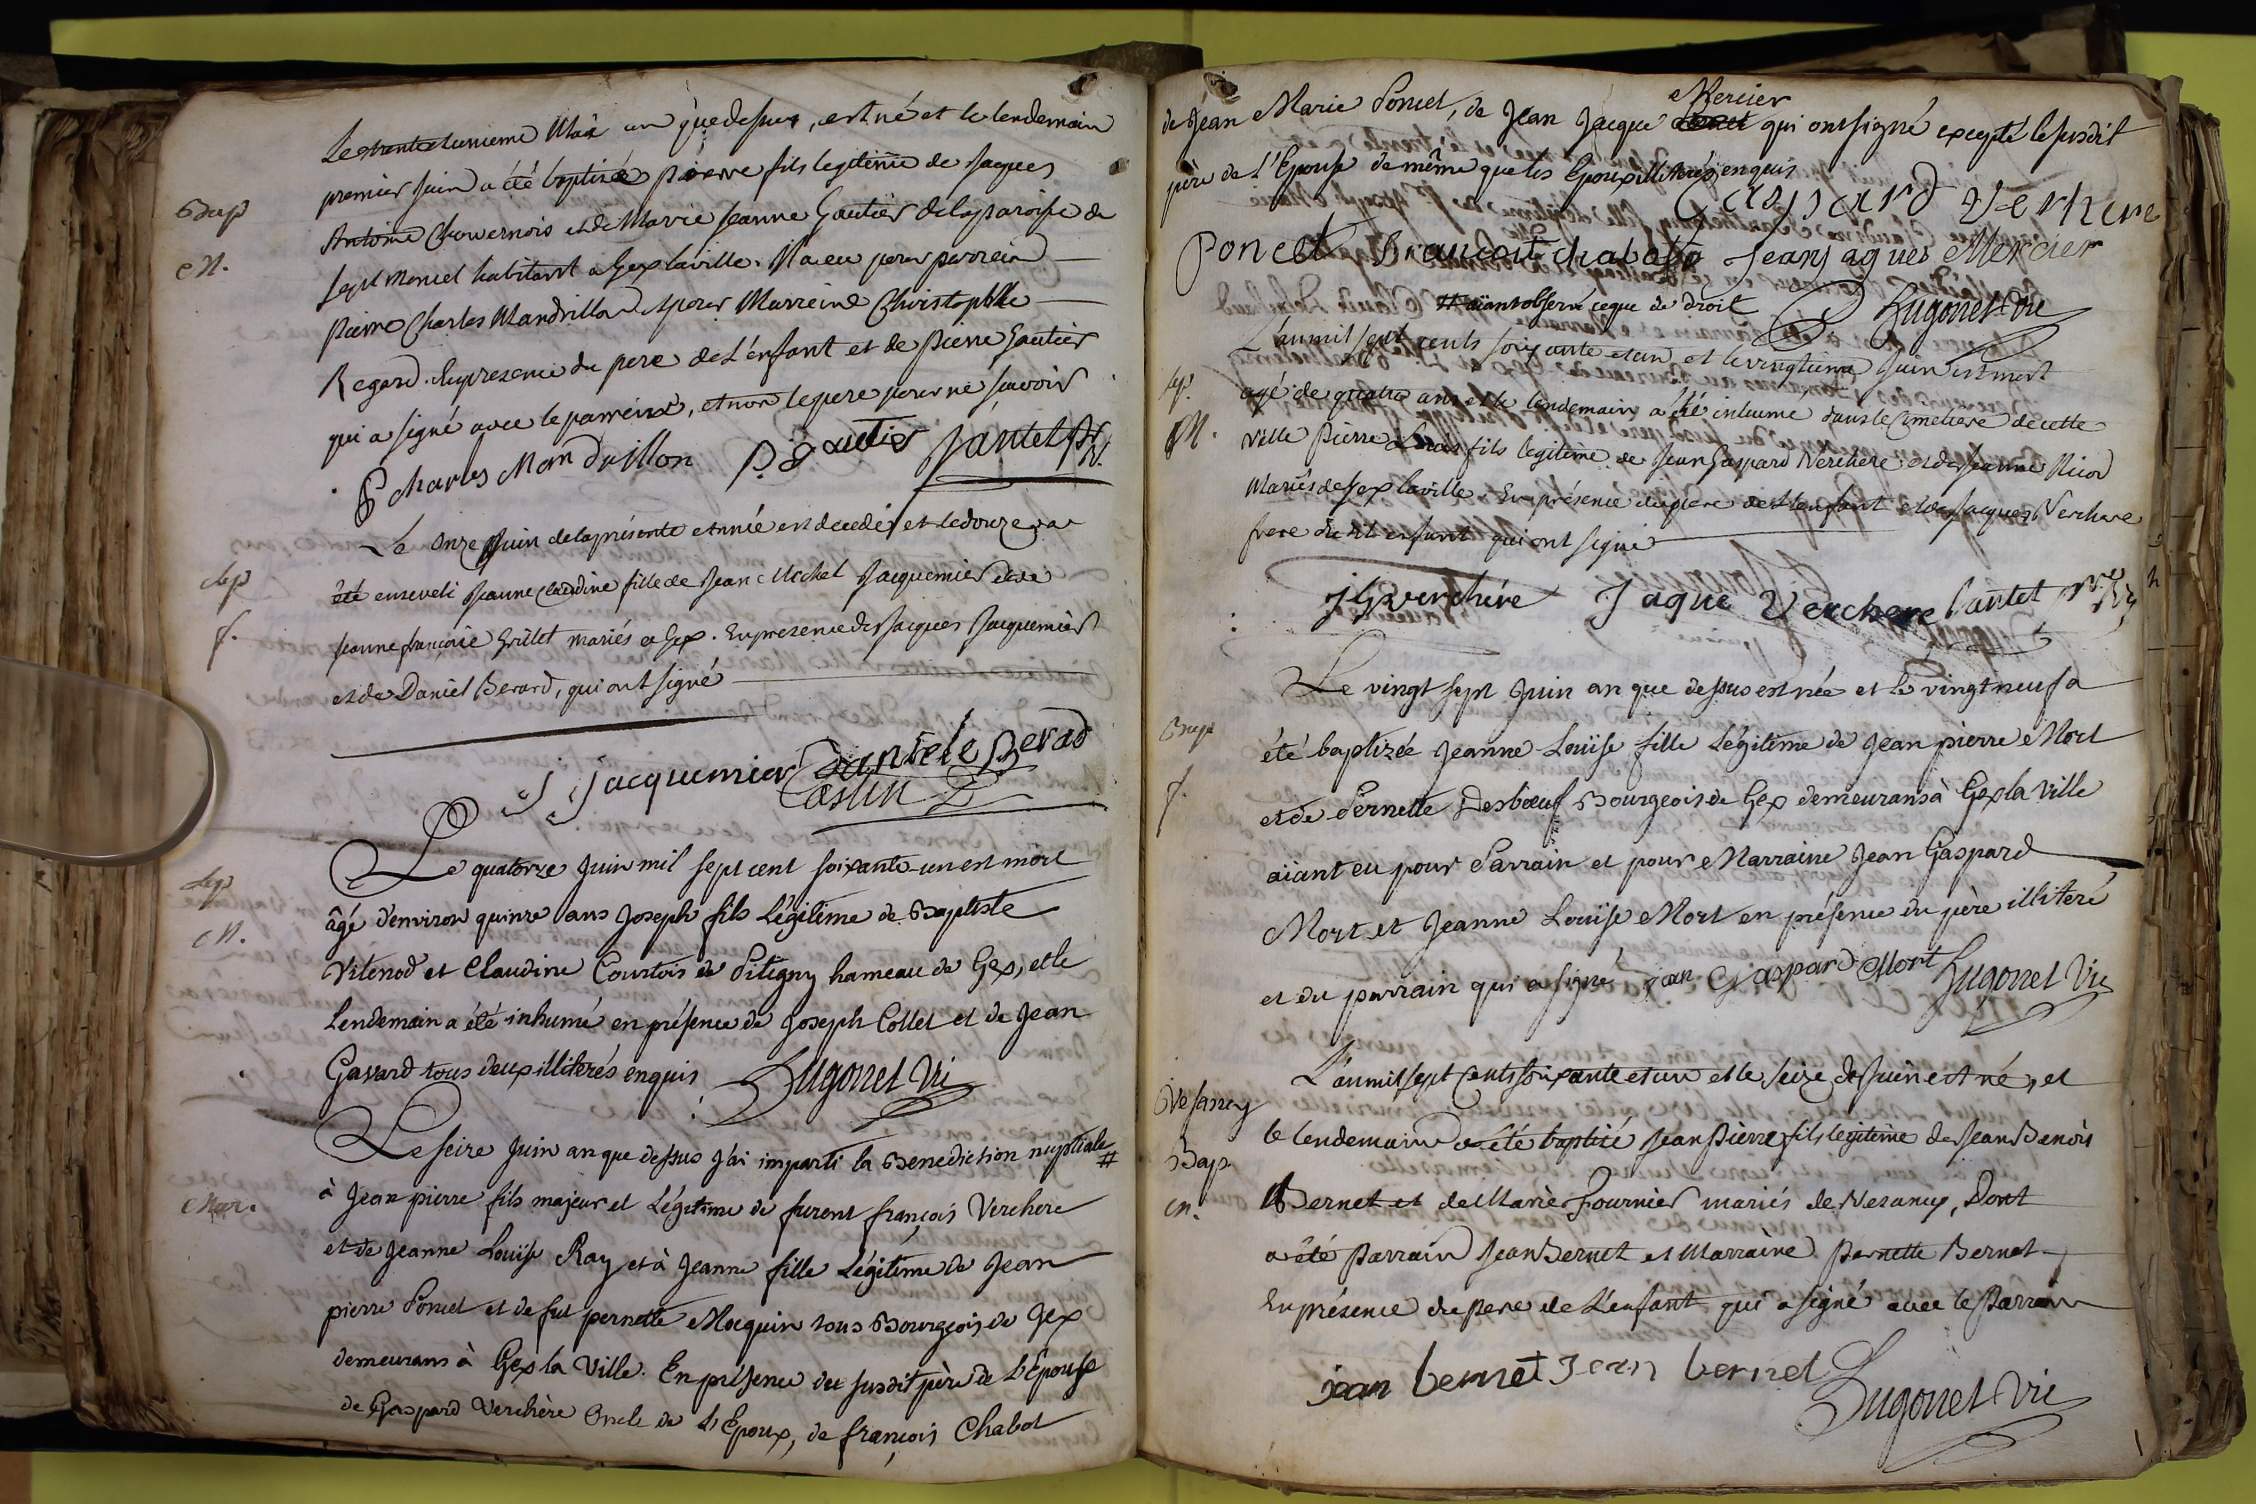 Le trente et unieme Mai an que dessus, est né et le lendemain
premier Juin a été baptisé Pierre fils legitime de Jacques
Bap
Antoine Chowernois et de Marie Jeanne Gautier de la paroisse de
M.
Sept Moncel habitant a Gex la ville. Il a eu pour parrein
Pierre Charles Mandrillon et pour Marreine Christophlle
Regard. En presence du pere de L'enfant et de Pierre Gautier
qui a signé avec le parrein, et non le pere pour ne savoir
P charles Mandrillon P. Gautier Pantet
Le onze Juin de la présente année est decedée et le douze a
Sep
été enseveli Jeanne Claudine fille de Jean Michel Jacquemier et de
f.
Jeanne françoise Grillet mariés a Gex. En presence de Jacques Jacquemier
et de Daniel Berard, qui ont signé
J Jacquemier Daniele Berad
Castin
Le quatorze Juin mil sept cent soixante-un est mort
Sep
âgé d'environ quinze ans Joseph fils Légitime de Baptiste
M.
Vitenod et Claudine Courtois de Pitigny hameau de Gex, et le
Lendemain a été inhumé en présence de Joseph Collet et de Jean
Gavard tous deux illiterés enquis Hugonet Vic
Le seize Juin an que dessus J'ai imparti la Benediction nuptiale #
Mar.
à Jean pierre fils majeur et Légitime de furent françois Verchere
et de Jeanne Louïse Ray et à Jeanne fille Légitime de Jean
pierre Poncet et de fut pernette Mocquin tous Bourgeois de Gex
demeurans à Gex la Ville. En présence du susdit père de L'Epouse
de Gaspard Verchère Oncle de L'Epoux, de françois Chabot
de Jean Marie Poncet, de Jean Jacque Mercier qui ont signé excepté le susdit
père de L'Epouse de même que les Epoux illiterés enquis
Gaspard Verchere
Poncet francoit chabot Jean Jaques Mercier
# aïant observé ce que de droit Hugonet Vic
L'an mil sept cents soixante et un et le vingtieme Juin est mort
Sep.
agé de quatre ans et le lendemain a été inhumé dans le Cimetiere de cette
M.
Ville Pierre fils legitime de Jean Gaspard Verchere et de Jeanne Nicod
Mariés de Gex la ville. En présence du pere de L'enfant et de Jacques Verchere
frere du dt enfant qui ont signé
J G verchére Jaque Verchere Pantet
Le vingt sept Juin an que dessus est née et le vingt neuf a
Bap
été baptizée Jeanne Louïse fille Légitime de Jean pierre Mort
f.
et de Pernette Desbœuf Bourgeois de Gex demeurans à Gex la Ville
aïant eu pour Parrain et pour Marraine Jean Gaspard
Mort et Jeanne Louïse Mort en présence du père illiteré
et du parrain qui a signé jean Gaspard Mort Hugonet Vic
L'an mil sept Cents soixante et un et le seize de Juin est né, et
Vesancy
le lendemain a été baptisé Jean Pierre fils legitime de Jean Benois
Bap
Bernet et de Marie Fournier mariés de Vesancy, Dont
M.
a été Parrain Jean Bernet et Marraine Pernette Bernet
En présence du Pere de L'enfant qui a signé avec le Parrain
jean bernet Jean bernet Hugonet Vic